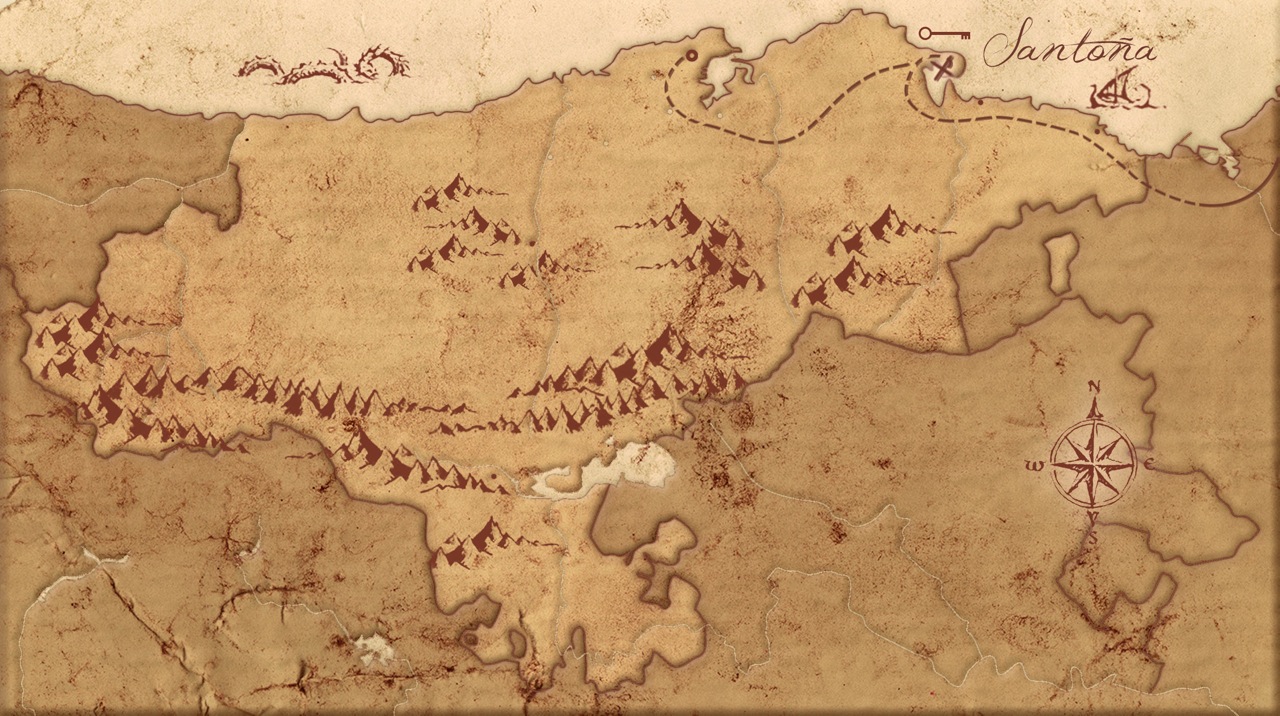 Santoña
N
W E
S